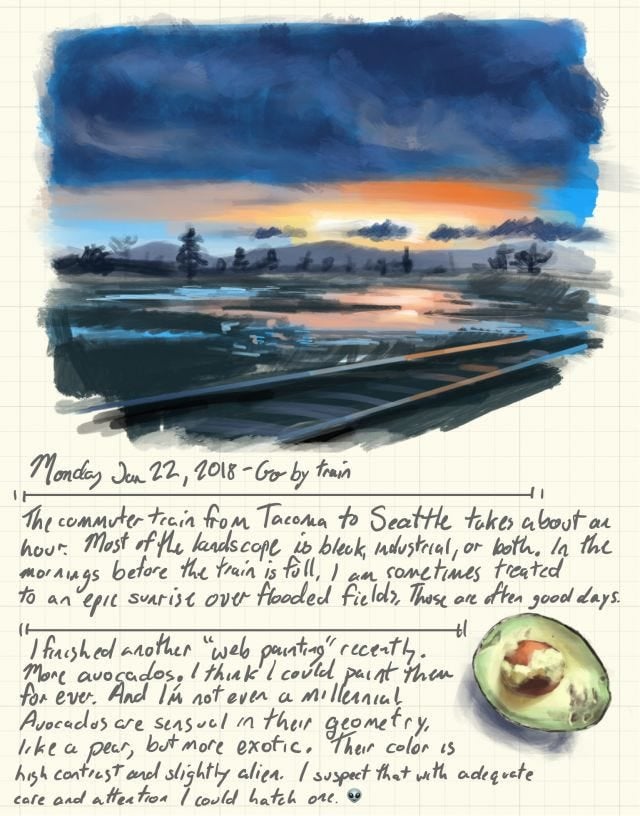 Monday Jan 22, 2018 - Go by train
The commuter train from Tacoma to Seattle takes about an
hour. Most of the landscape is bleak, industrial, or both. In the
mornings before the train is full, I am sometimes treated
to an epic sunrise over flooded fields. Those are often good days.
I finished another "web painting" recently.
More avocados. I think I could paint them
for ever. And I'm not even a millennial
Avocados are sensual in their geometry,
like a pear, but more exotic. Their color is
high contrast and slightly alien. I suspect that with adequate
care and attention I could hatch one. 👽